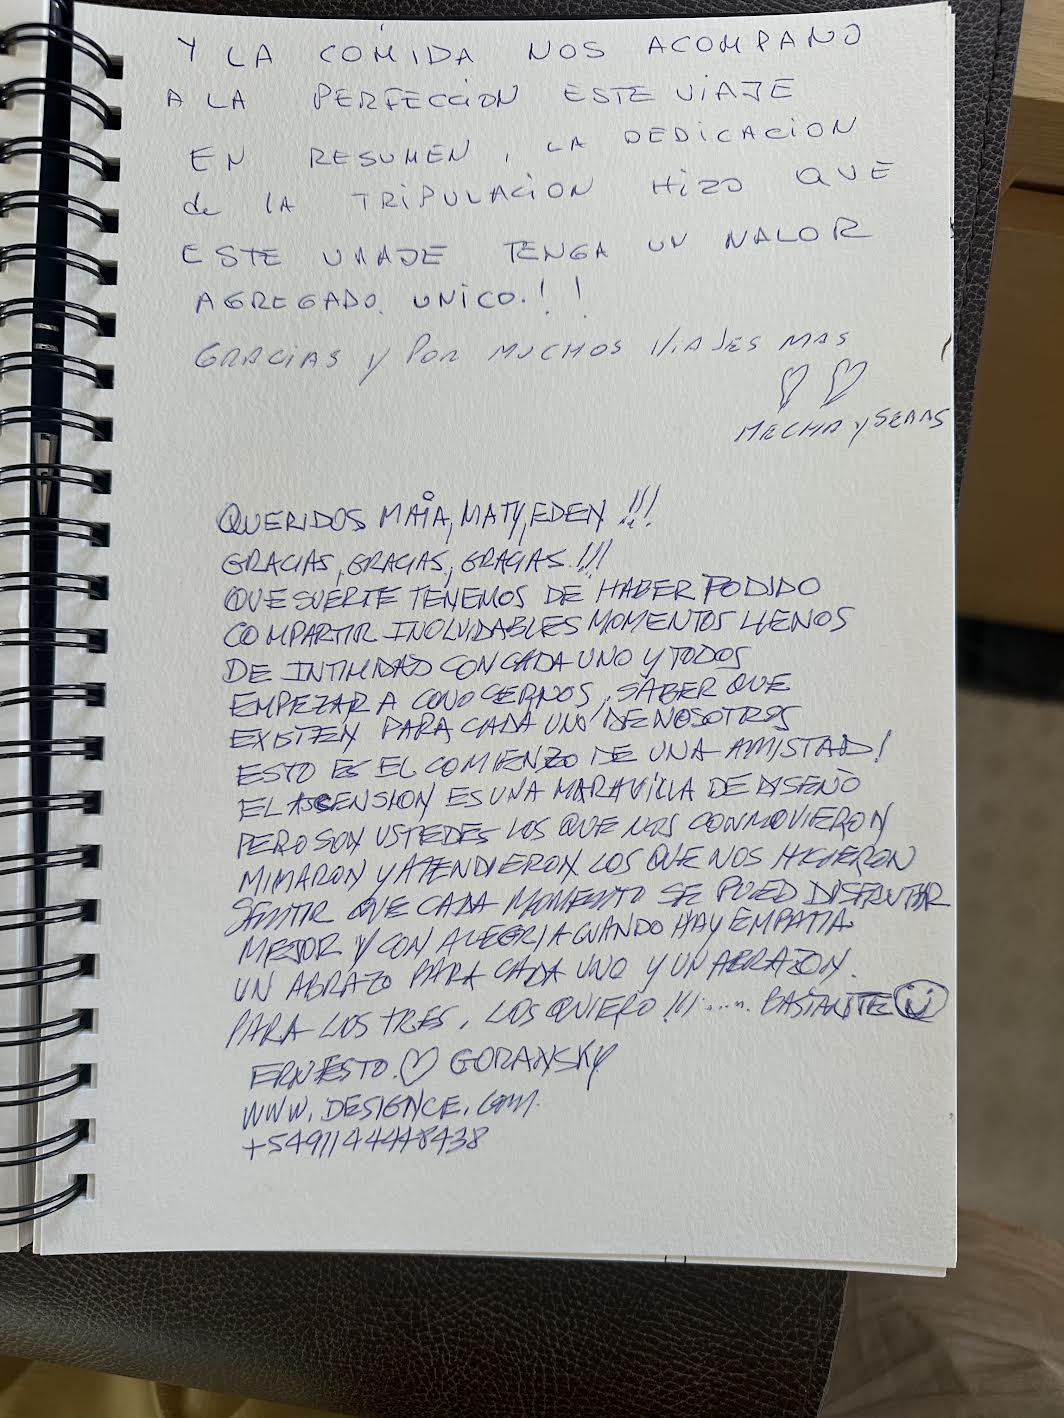 Y LA COMIDA NOS ACOMPAÑO
A LA PERFECCION ESTE VIAJE
EN RESUMEN, LA DEDICACION
de LA TRIPULACION HIZO QUE
ESTE VIAJE TENGA UN VALOR
AGREGADO UNICO.!!
GRACIAS y POR MUCHOS VIAJES MAS
MECHA y SEBAS
QUERIDOS MAIA, MATY, EDEN !!!
GRACIAS, GRACIAS, GRACIAS.!!!
QUE SUERTE TENEMOS DE HABER PODIDO
COMPARTIR INOLVIDABLES MOMENTOS LLENOS
DE INTIMIDAD CON CADA UNO Y TODOS
EMPEZAR A CONOCERNOS, SABER QUE
EXISTEN PARA CADA UNO DE NOSOTROS
ESTO ES EL COMIENZO DE UNA AMISTAD!
EL ASCENSION ES UNA MARAVILLA DE DISEÑO
PERO SON USTEDES LOS QUE NOS CONMOVIERON
MIMARON Y ATENDIERON LOS QUE NOS HICIERON
SENTIR QUE CADA MOMENTO SE PUED DISFRUTAR
MEJOR Y CON ALEGRIA CUANDO HAY EMPATIA
UN ABRAZO PARA CADA UNO Y UN ABRAZON.
PARA LOS TRES. LOS QUIERO !!! ..... BASTANTE
ERNESTO. GORANSKY
WWW.DESIGNCE.COM.
+5491144448438